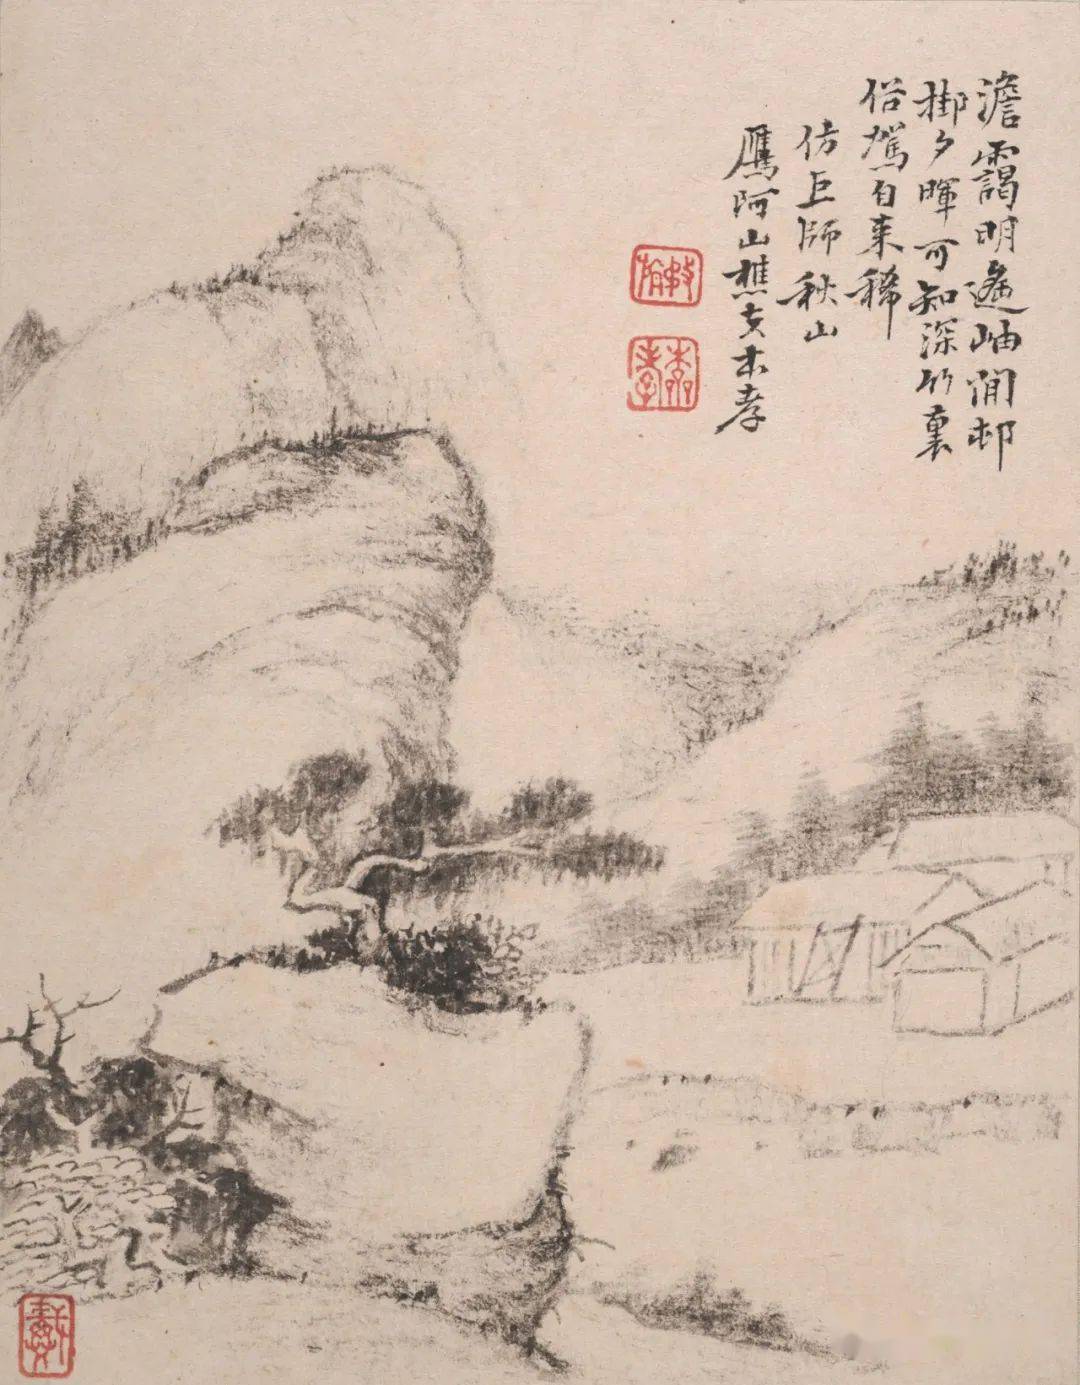 澹靄明遙岫閒邨
掛夕暉可知深竹裏
俗駕自來稀
仿巨師秋山
鷹阿山樵戴本孝